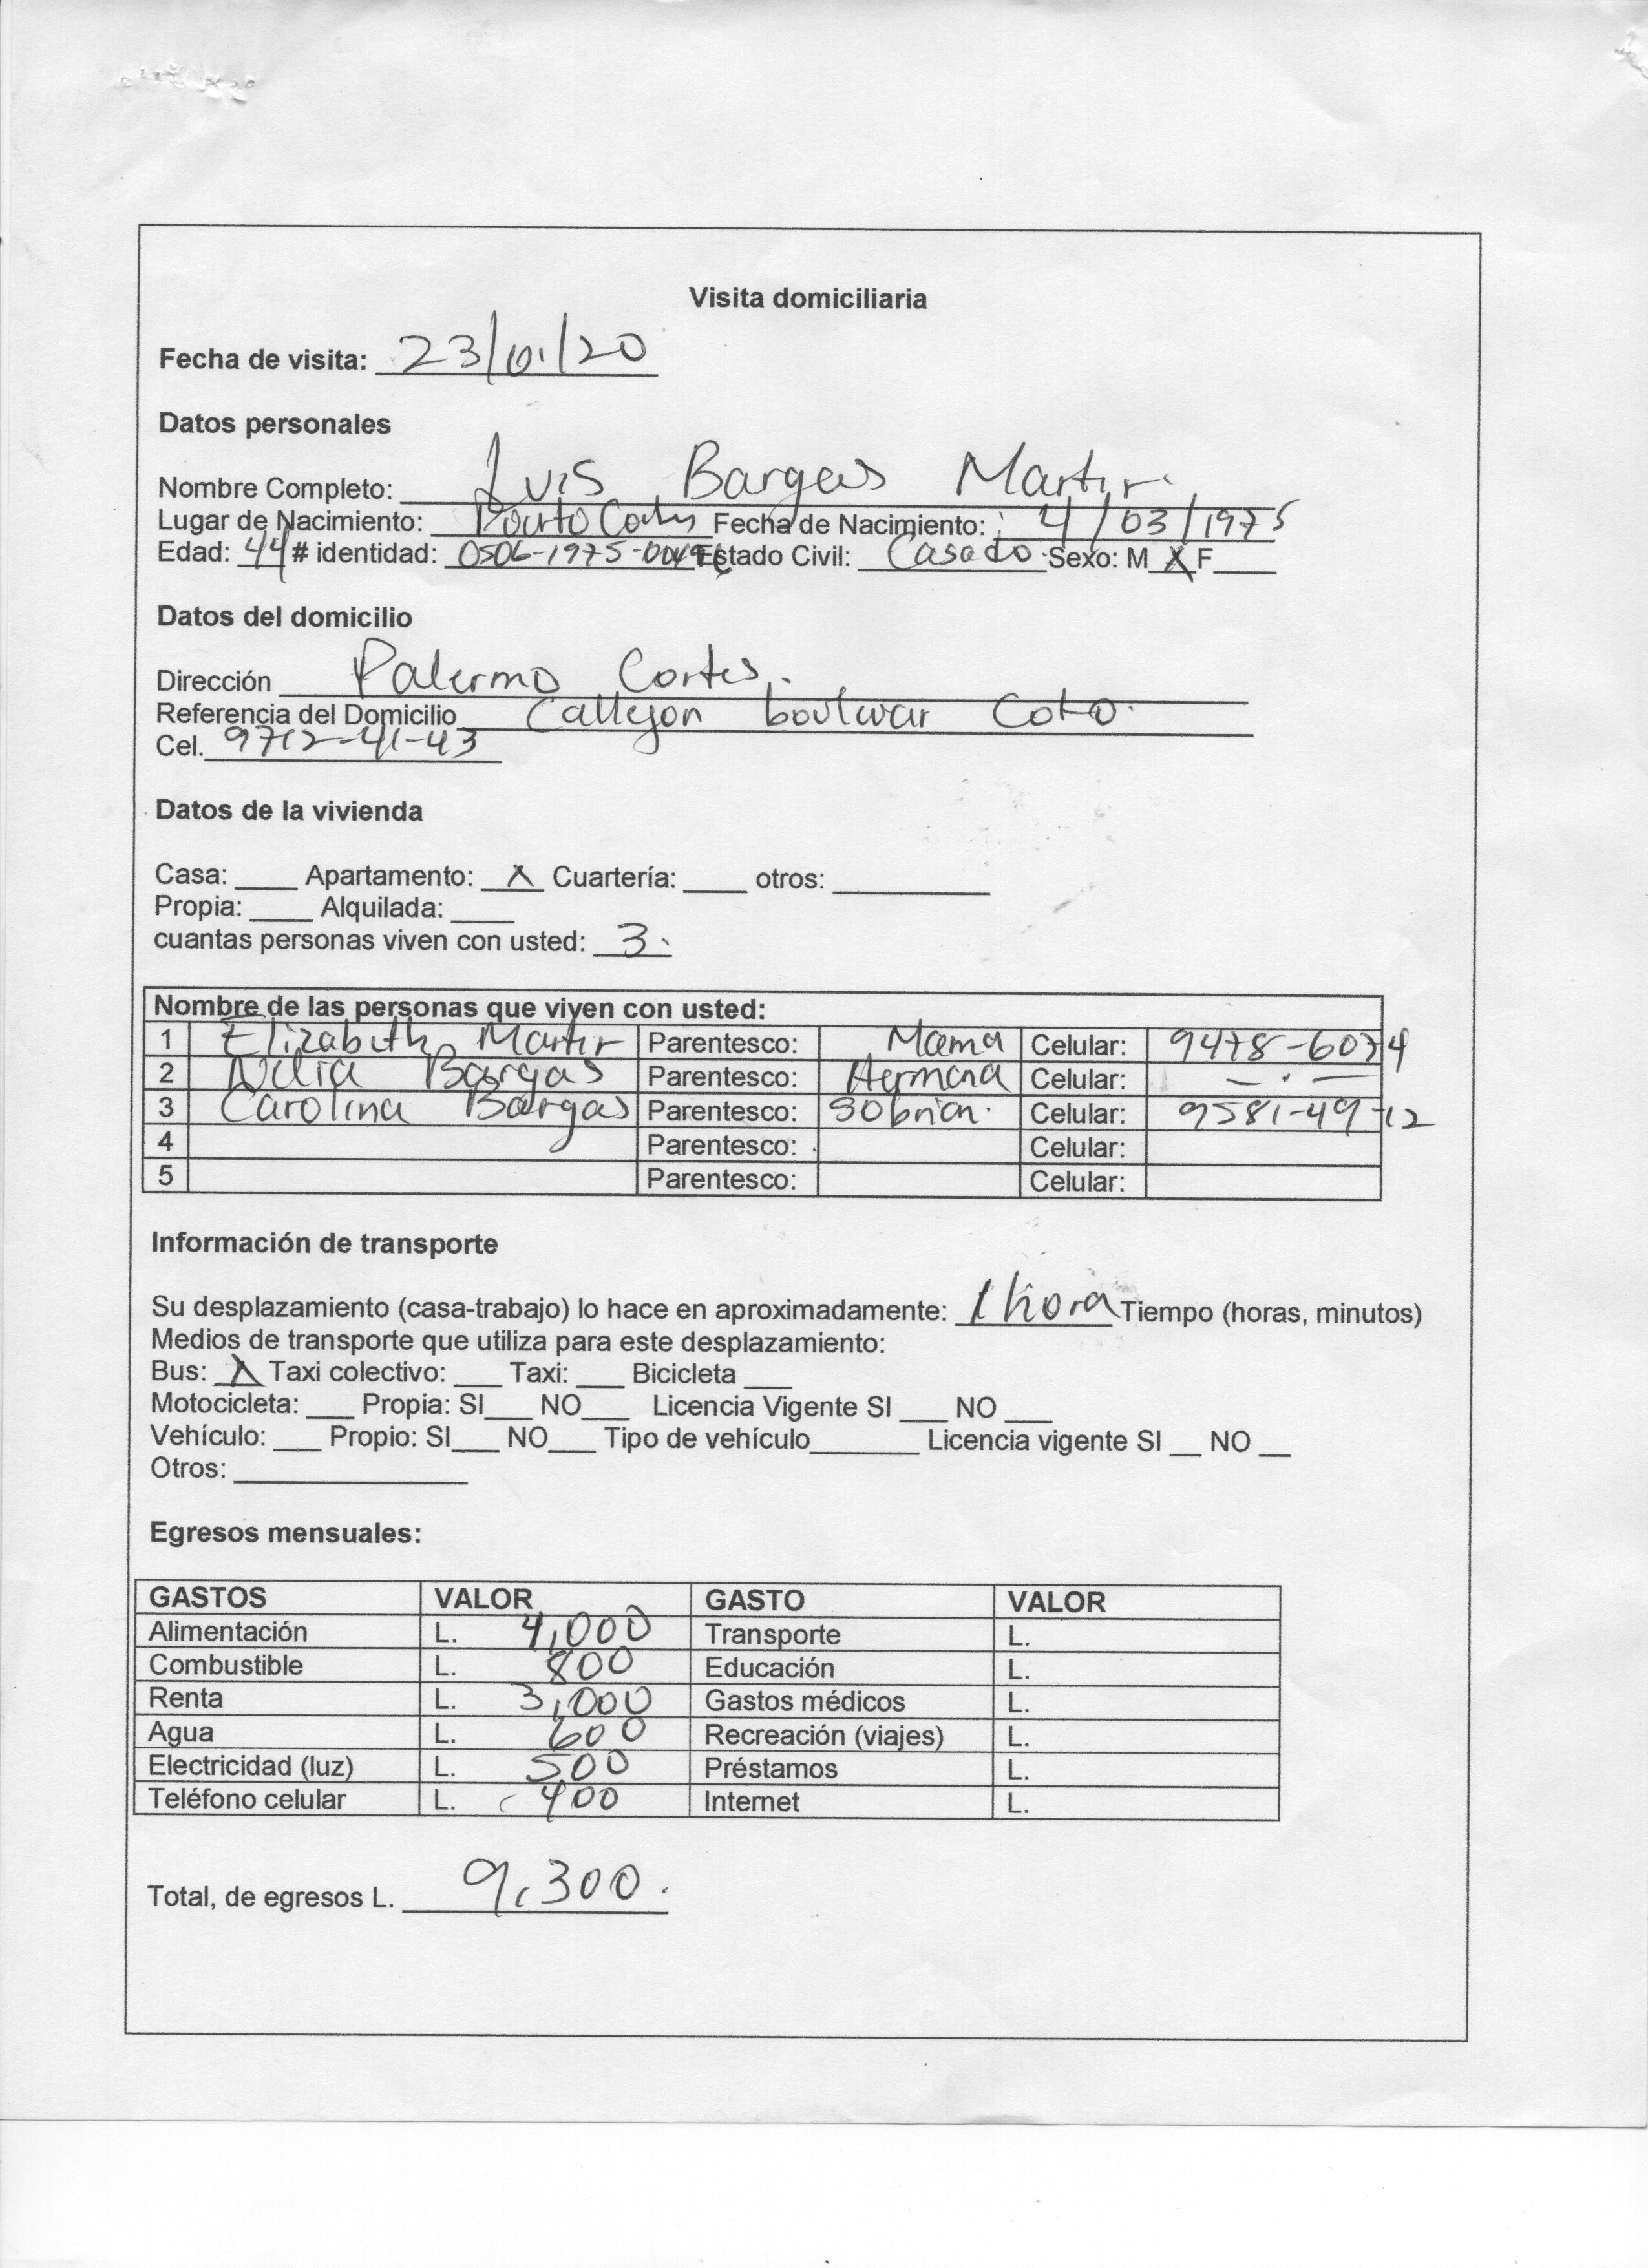 Visita domiciliaria
Fecha de visita: 23/01/20
Datos personales
Nombre Completo: Luis Bargas Martir.
Lugar de Nacimiento: Pourto Cortes Fecha de Nacimiento: 4/03/1975
Edad: 44 # identidad: 0506-1975- Estado Civil: Casado. Sexo: M X F
Datos del domicilio
Dirección Palermo Cortes.
Referencia del Domicilio Callejon boulevar Coto.
Cel. 9712-41-43
Datos de la vivienda
Casa: ____ Apartamento: X Cuartería: ____ otros: ____
Propia: ____ Alquilada: ____
cuantas personas viven con usted: 3.
Nombre de las personas que viven con usted:
1 Elizabeth Martir Parentesco: Mama Celular: 9478-6074
2 Bargas Parentesco: Hermana Celular: — . —
3 Carolina Bargas Parentesco: Sobrin. Celular: 9581-49-12
4 Parentesco: Celular:
5 Parentesco: Celular:
Información de transporte
Su desplazamiento (casa-trabajo) lo hace en aproximadamente: 1 hora Tiempo (horas, minutos)
Medios de transporte que utiliza para este desplazamiento:
Bus: X Taxi colectivo: ___ Taxi: ___ Bicicleta ___
Motocicleta: ___ Propia: SI___ NO___ Licencia Vigente SI ___ NO ___
Vehículo: ___ Propio: SI___ NO___ Tipo de vehículo_______ Licencia vigente SI __ NO __
Otros: ____
Egresos mensuales:
GASTOS VALOR GASTO VALOR
Alimentación L. 4,000 Transporte L.
Combustible L. 800 Educación L.
Renta L. 3,000 Gastos médicos L.
Agua L. 600 Recreación (viajes) L.
Electricidad (luz) L. 500 Préstamos L.
Teléfono celular L. 400 Internet L.
Total, de egresos L. 9,300.